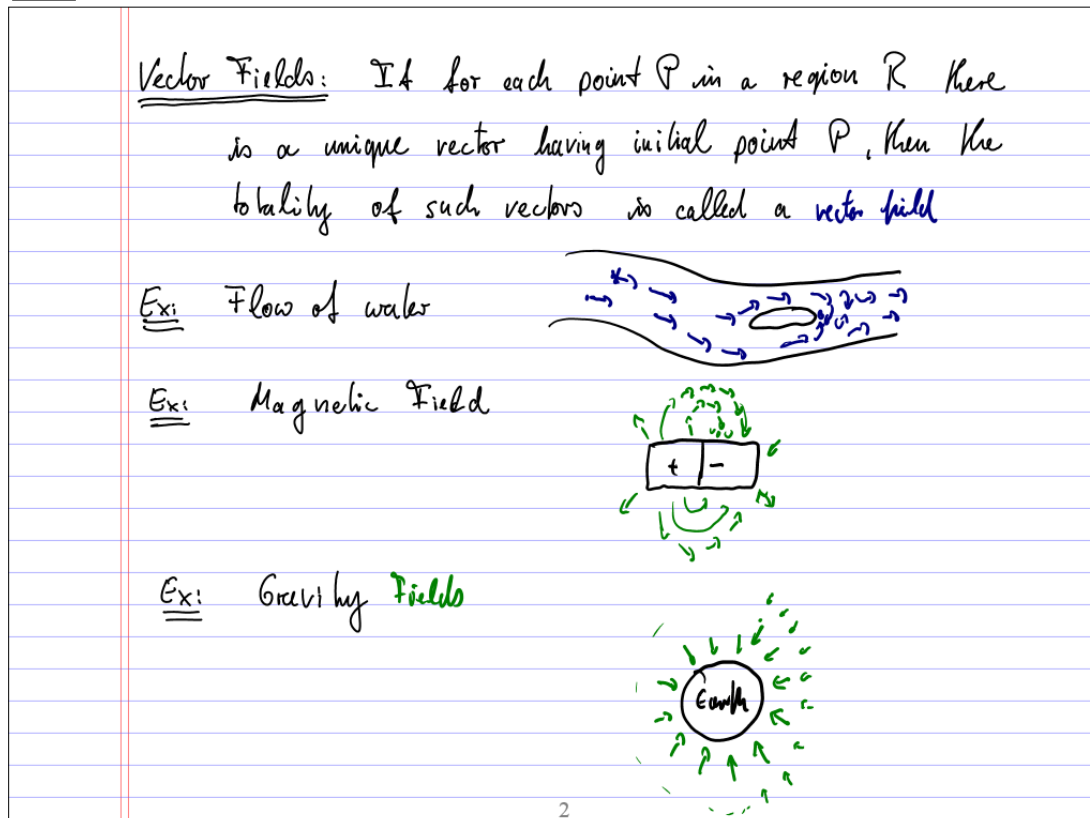 Vector Fields: If for each point P in a region R there
is a unique vector having initial point P, then the
totality of such vectors is called a vector field
Ex: Flow of water
Ex: Magnetic Field
+ -
Ex: Gravity Fields
Earth
2